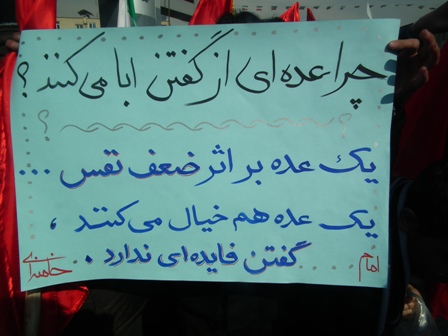 چرا عده ای از گفتن ابا می کنند؟
؟ ؟
یک عده بر اثر ضعف نفس ...
یک عده هم خیال می کنند ،
گفتن فایده ای ندارد .
امام خامنه ای